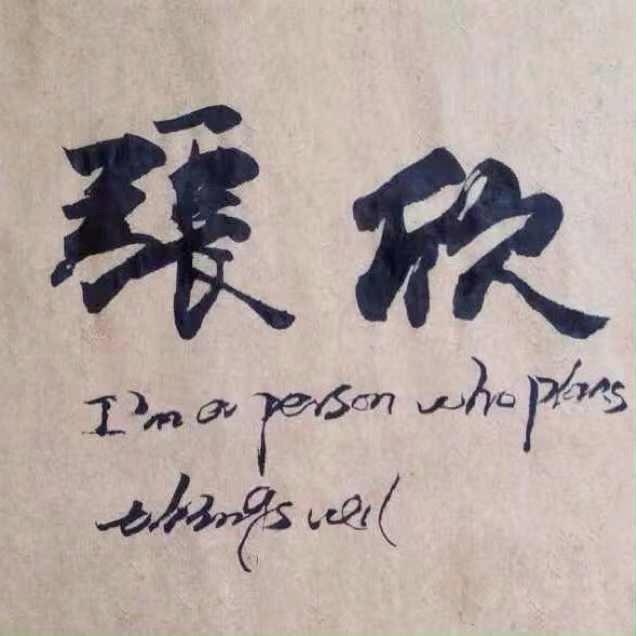 張欣
I'm a person who plans
things well